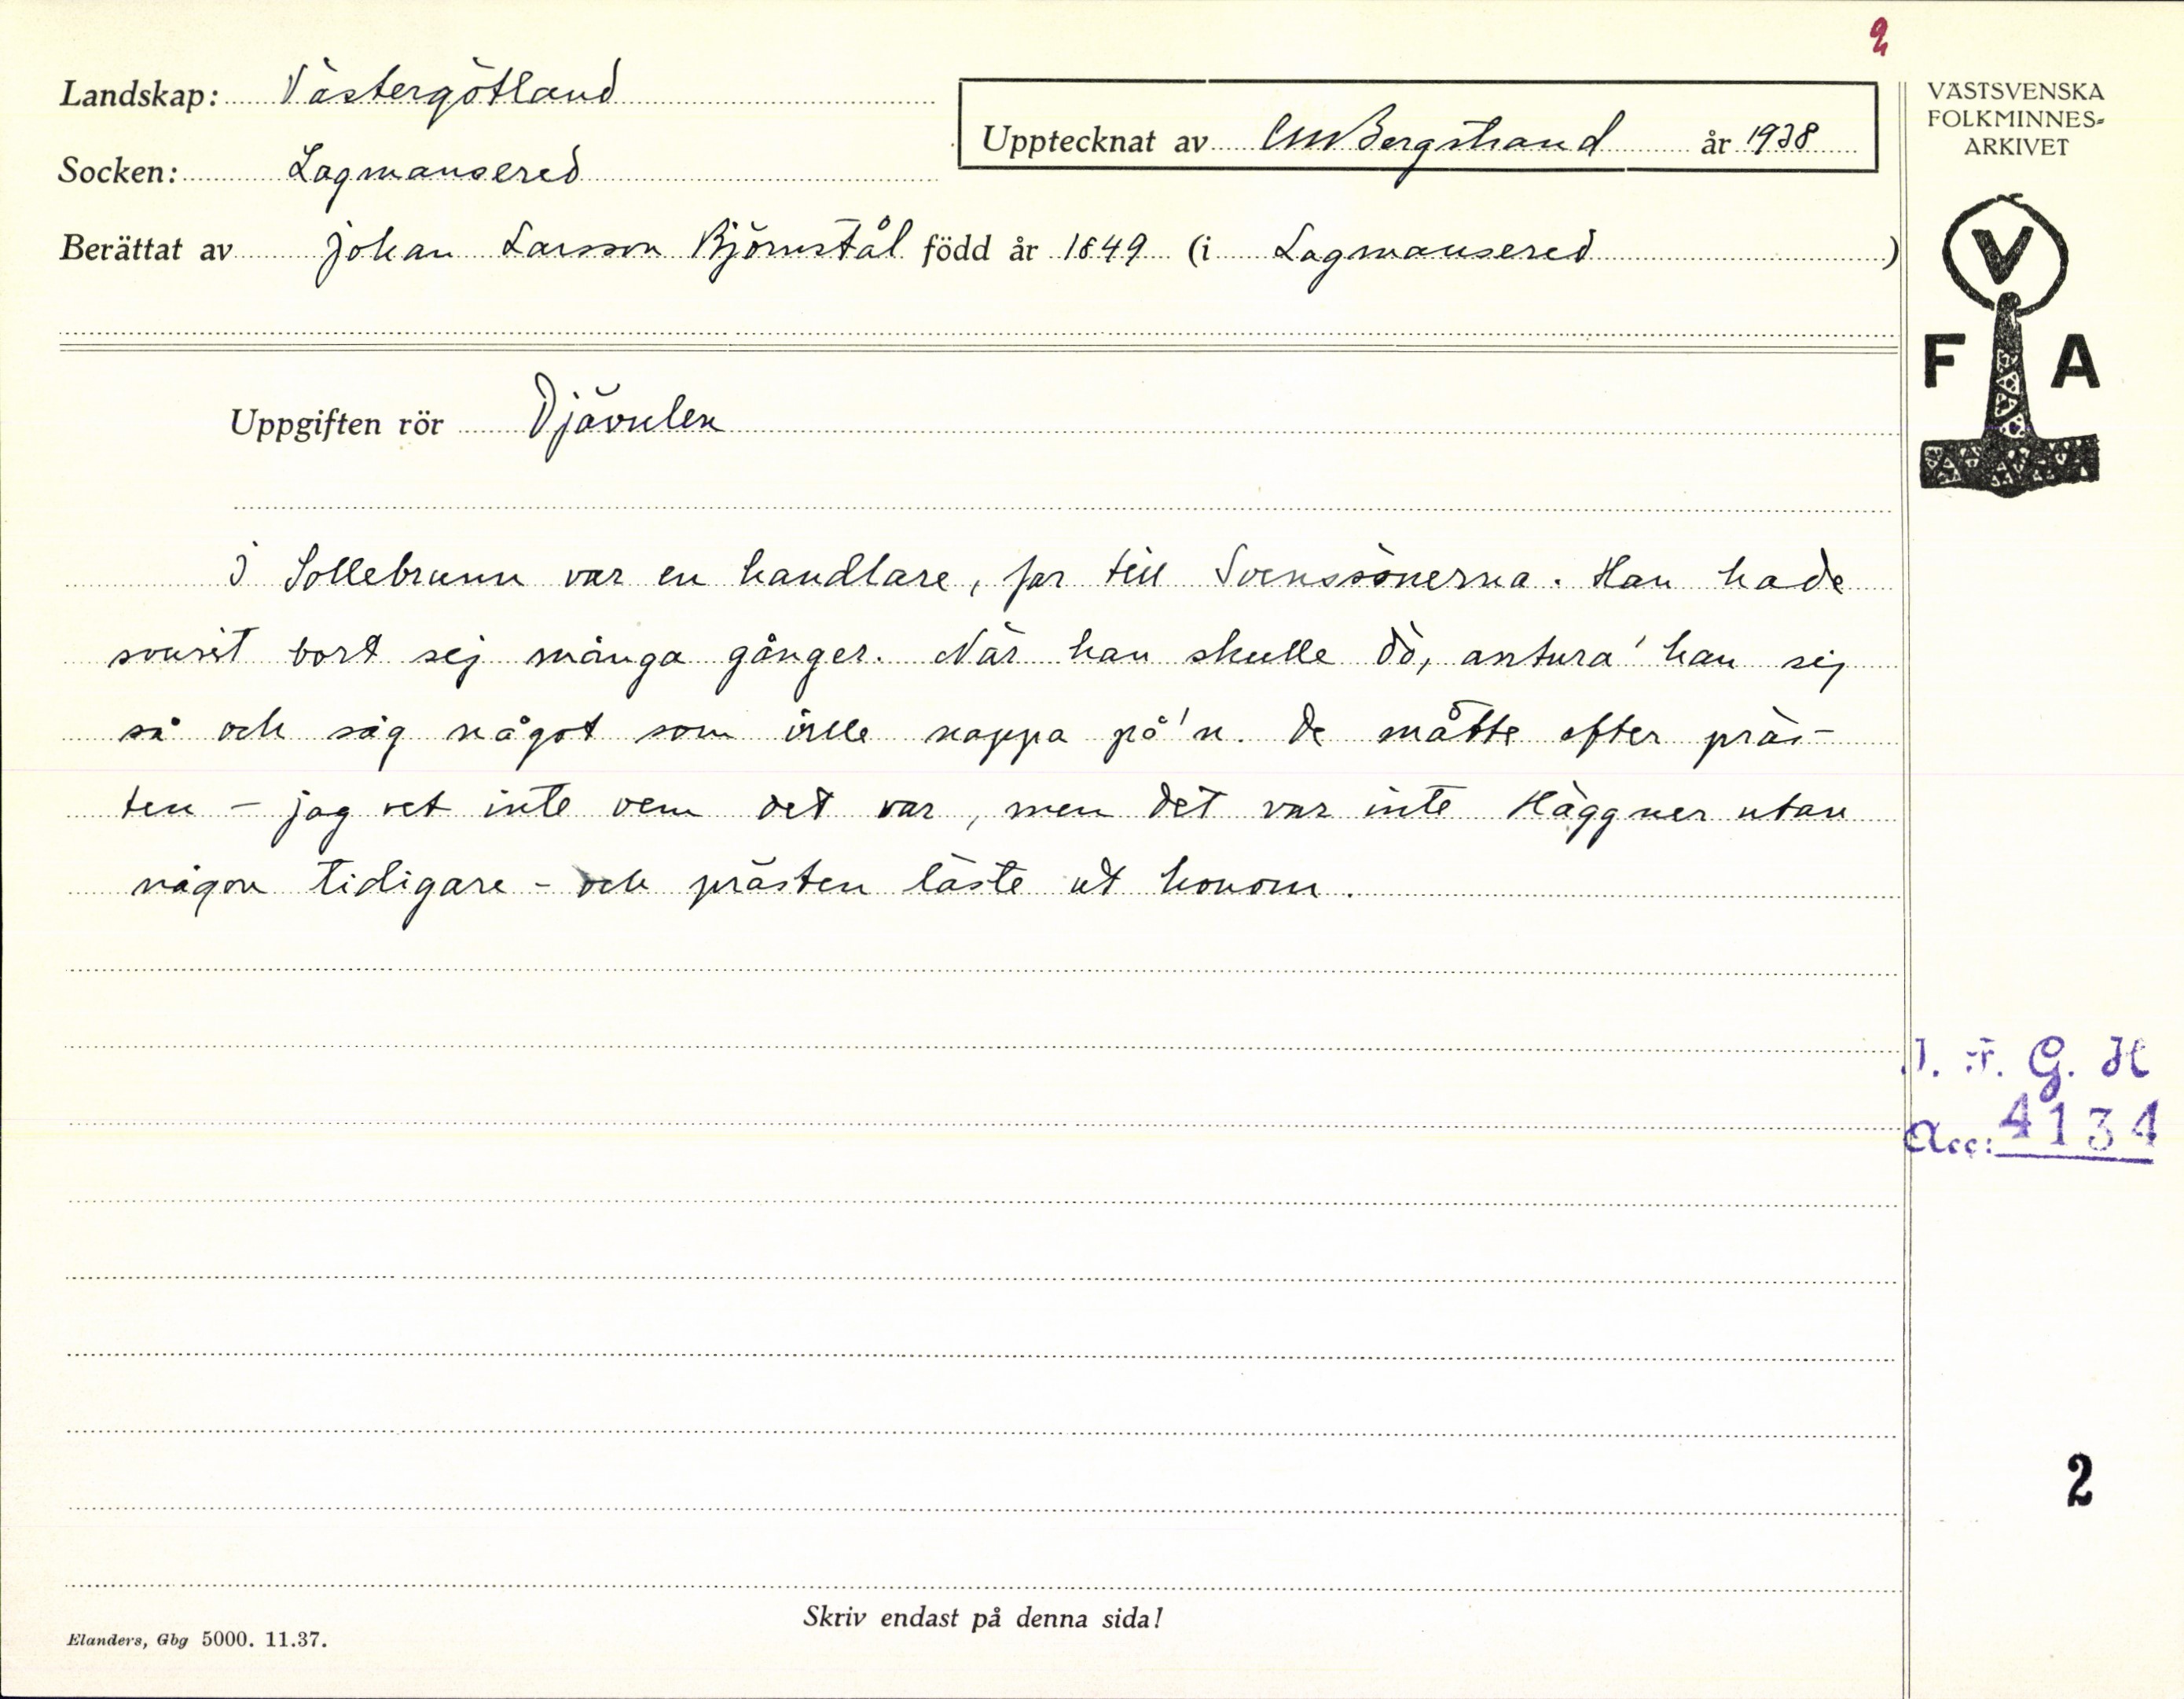 2
Landskap: Västergötland
Socken: Lagmansered
Upptecknat av CMBergstrand år 1938
Berättat av Johan Larsson Björnstål född år 1849 (i Lagmansered)
VÄSTSVENSKA
FOLKMINNES-
ARKIVET
V
F A
Uppgiften rör Djävulen
I Sollebrunn var en handlare, far till Svenssönerna. Han hade
svurit bort sej många gånger. När han skulle dö, antura' han sej
så och såg något som ville nappa på'n. De måtte efter präs-
ten - jag vet inte vem det var, men det var inte Häggner utan
någon tidigare - och prästen läste ut honom.
I. F. G. H
Acc: 4134
2
Skriv endast på denna sida!
Elanders, Gbg 5000. 11.37.